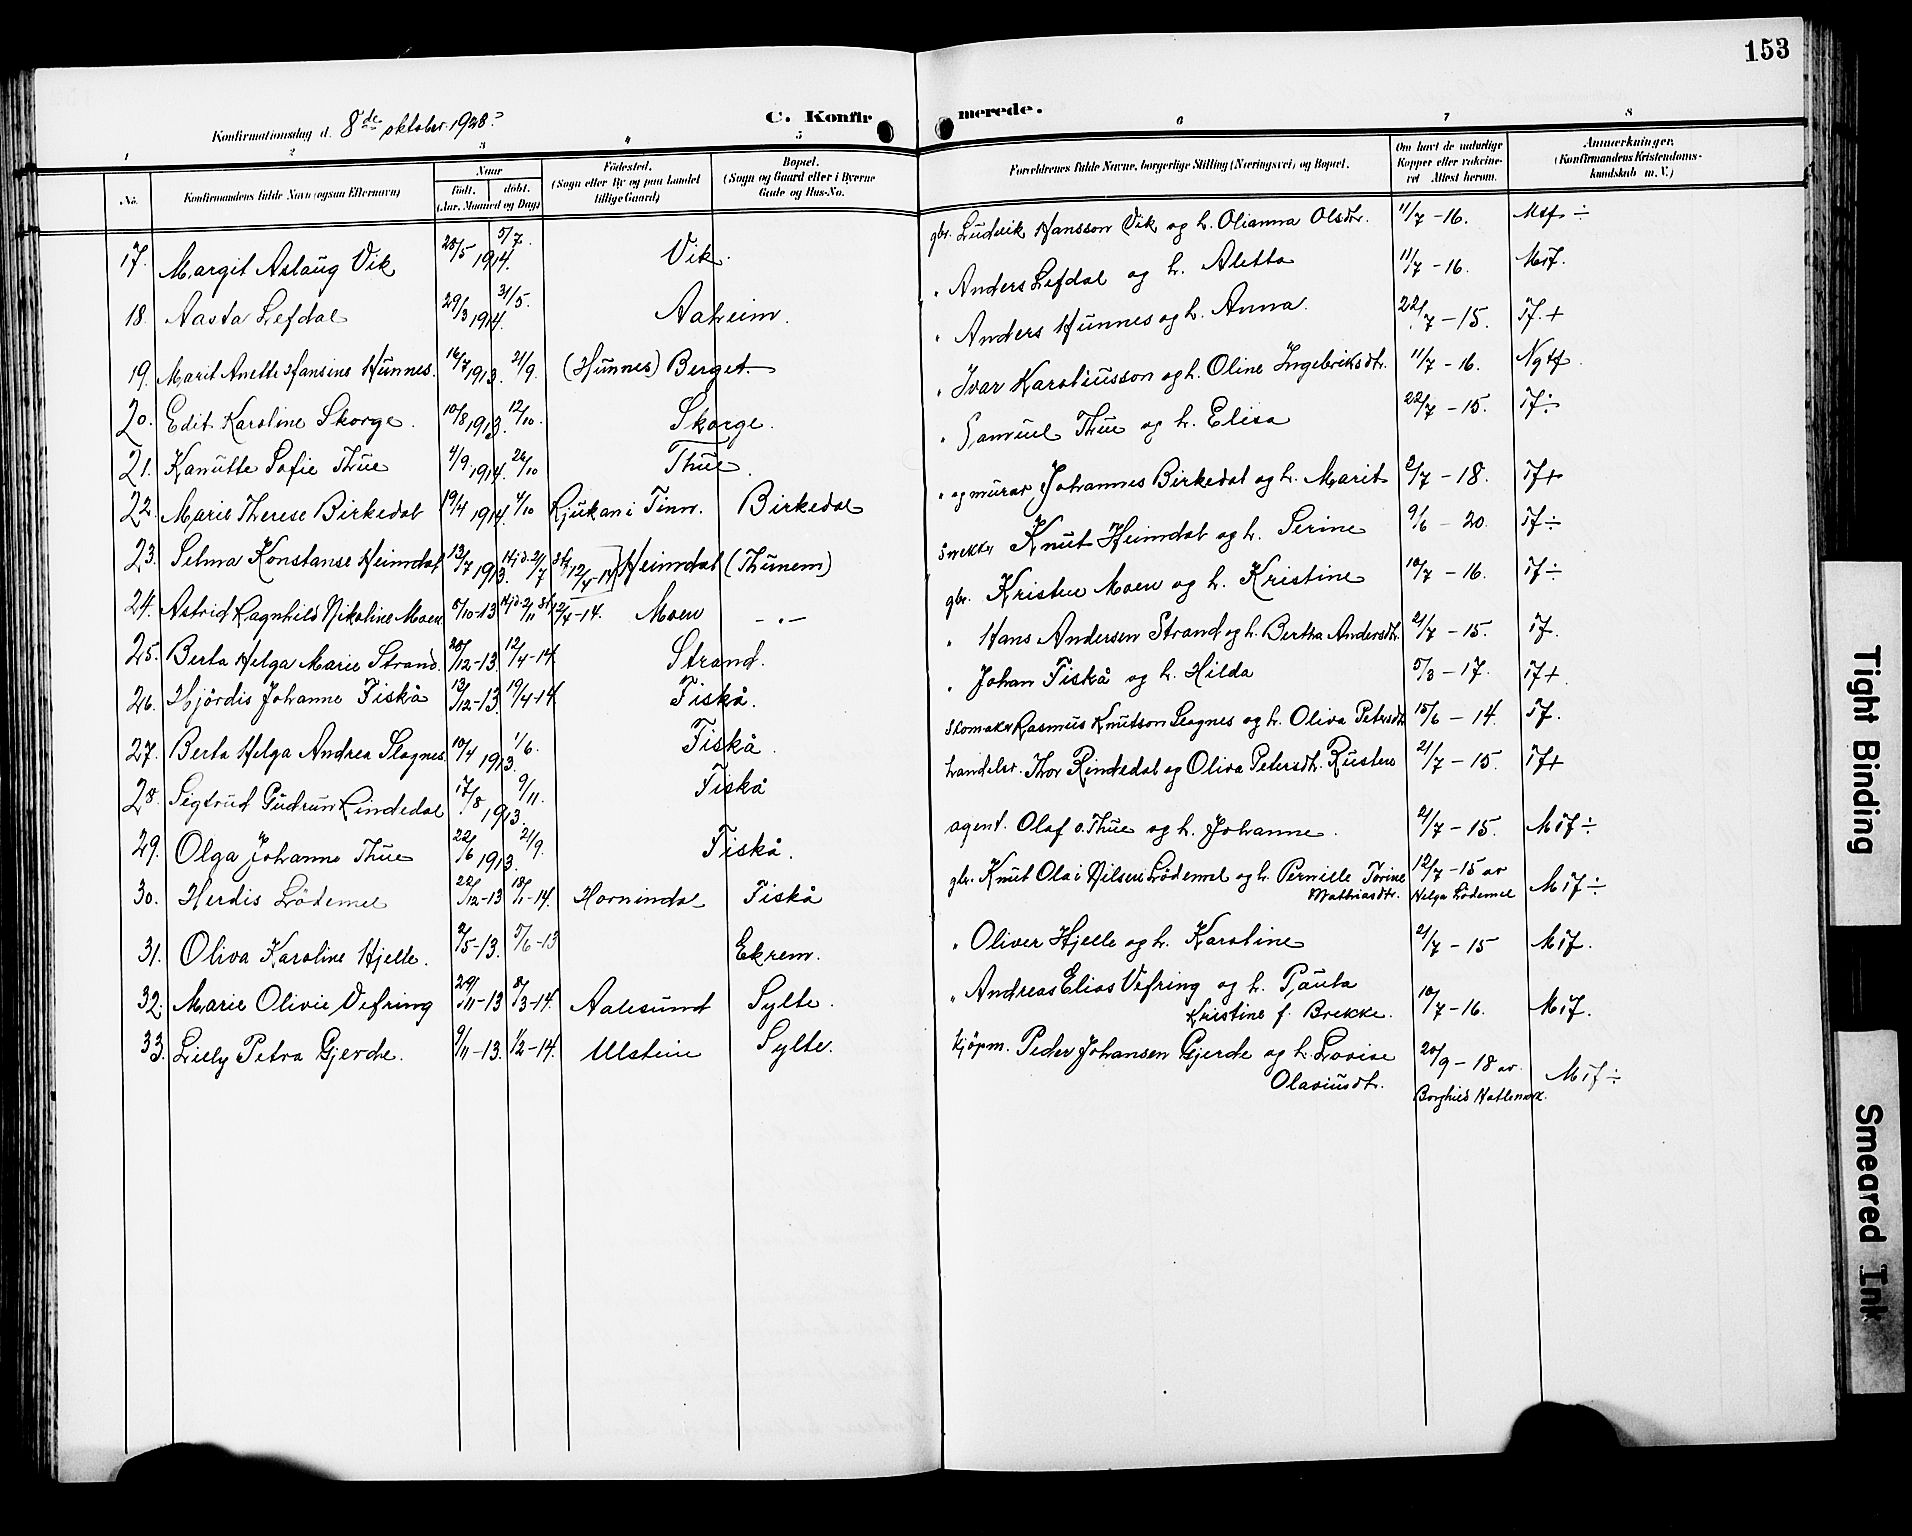 153
C. Konfirmerede.
Konfirmationsdag d. 8de oktober 1928
1 2 3 4 5 6 7 8
No.
Konfirmandens fulde Navn (ogsaa Efternavn)
Naar
født. døbt.
(Aar, Maaned og Dag)
Fødested.
(Sogn eller By og paa Landet
tillige Gaard)
Bopæl.
(Sogn og Gaard eller i Byerne
Gade og Hus-No.
Forældrenes fulde Navne, borgerlige Stilling (Næringsvei) og Bopæl.
Om havt de naturlige
Kopper eller vakcine-
ret Attest herom.
Anmærkninger.
(Konfirmandens Kristendoms-
kundskab m. V.)
17. Margit Aslaug Vik 28/5 1914. 5/7. Vik. gbr. Ludvik Hansson Vik og h. Olianna Olsdtr. 11/7 - 16. Mtf ÷
18. Aasta Lefdal 29/3 1914. 31/5. Aaheim. " Anders Lefdal og h. Aletta 11/7 - 16. M 17.
19. Marit Anette Hansine Hunnes. 16/7 1913. 21/9. (Hunnes) Berget " Anders Hunnes og h. Anna. 22/7 - 15. 17. +
20. Edit Karoline Skorge. 10/8 1913. 12/10. Skorge. " Ivar Karoliusson og h. Oline Ingebriksdtr. 11/7 - 16. Ngtf.
21. Kanutte Sofie Thue 4/9 1914. 26/10 Thue. " Samuel Thue og h. Elisa 22/7 - 15. 17 ÷
22. Marie Therese Birkedal 19/4 1914. 4/10 Rjukan i Tinn. Birkedal " og murar Johannes Birkedal og h. Marit 2/7 - 18. 17 +
23. Selma Konstanse Heimdal 13/7 1913. Hjd. 2/7 Heimdal (Thunem) Snekker Knut Heimdal og h. Serine 9/6 - 20. 17 ÷
24. Astrid Ragnhild Nikoline Moen 5/10-13 Hjd. 2/11 Moen - " - gbr. Kristen Moen og h. Kristine 10/7 - 16. 17 ÷
25. Berta Helga Marie Strand. 28/12-13. 12/4-14. Strand. " Hans Andersen Strand og h. Bertha Andersdtr. 21/7 - 15. 17.
26. Hjördis Johanne Fiskå 13/12-13. 19/4-14. Fiskå. " Johan Fiskå og h. Hilda 5/3 - 17. 17 +
27. Berta Helga Andrea Slagnes. 10/4 1913. 1/6. Fiskå. Skomaker Rasmus Knutson Slagnes og h. Oliva Petersdtr. 15/6 - 14. 17.
28. Sigtrud Gudrun Rindedal 17/8 1913. 9/11. Fiskå handelsr. Thor Rindedal og Oliva Petersdtr. Rusten 21/7 - 15. 17 +
29. Olga Johanne Thue 22/6 1913. 21/9. Fiskå. agent. Olaf O. Thue og h. Johanne. 21/7 - 15. M 17 ÷
30. Herdis Lödemel 22/12-13 18/1-14. Hornindal Fiskå gbr. Knut Olai Nilsen Lödemel og h. Pernille Torine 12/7 - 15 av M 17 ÷
Mathiasdtr. Helga Lödemel
31. Oliva Karoline Hjelle. 2/5-13. 5/6-13 Ekrem. " Oliver Hjelle og h. Karoline 21/7 - 15 M 17.
32. Marie Olivie Vefring 29/11-13 8/3-14. Aalesund Sylte. " Andreas Elias Vefring og h. Paula
Kristine f. Brekke. 10/7 - 16. M 17.
33. Lielly Petra Gjerde. 9/11-13. 1/2-14. Ulstein Sylte. kjøpm. Peder Johansen Gjerde og h. Lovise 20/9 - 18 av. M 17 ÷
Olaviusdtr. Borghild Hatlemark.
Tight Binding
Smeared Ink